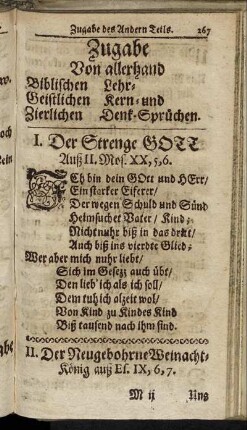 Zugabe des Andern Teils. 267
Zugabe
Von allerhand
Biblischen Lehr-
Geistlichen Kern- und
Zierlichen Denk-Sprüchen.
I. Der Strenge GOTT
Auß II. Mos. XX, 5, 6.
Ich bin dein GOtt und HErr/
Ein starker Eiferer/
Der wegen Schuld und Sünd
Heimsuchet Vater/ Kind;
Nicht nuhr biß in das dritt/
Auch biß ins vierdte Glied;
Wer aber mich nuhr liebt/
Sich im Gesetz auch übt/
Den lieb' ich als ich soll/
Dem tuh ich alzeit wol/
Von Kind zu Kindes Kind
Biß tausend nach ihm sind.
II. Der Neugebohrne Weinacht-
König auß Es. IX, 6, 7.
M ij Uns